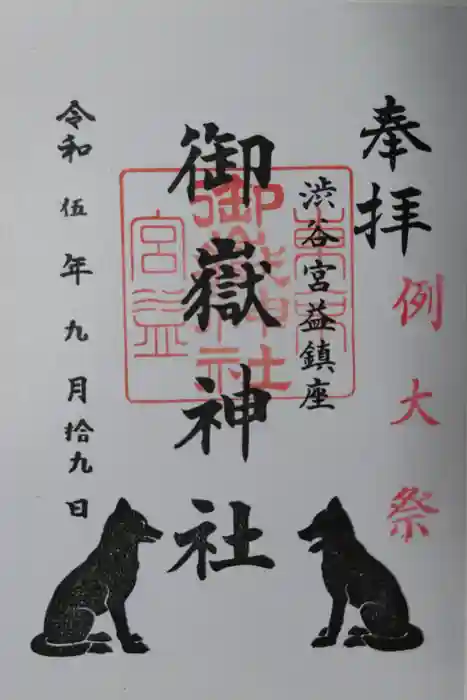 奉拝
例大祭
渋谷宮益鎮座
御嶽神社
令和伍年九月拾九日
東京
御嶽神社
宮益